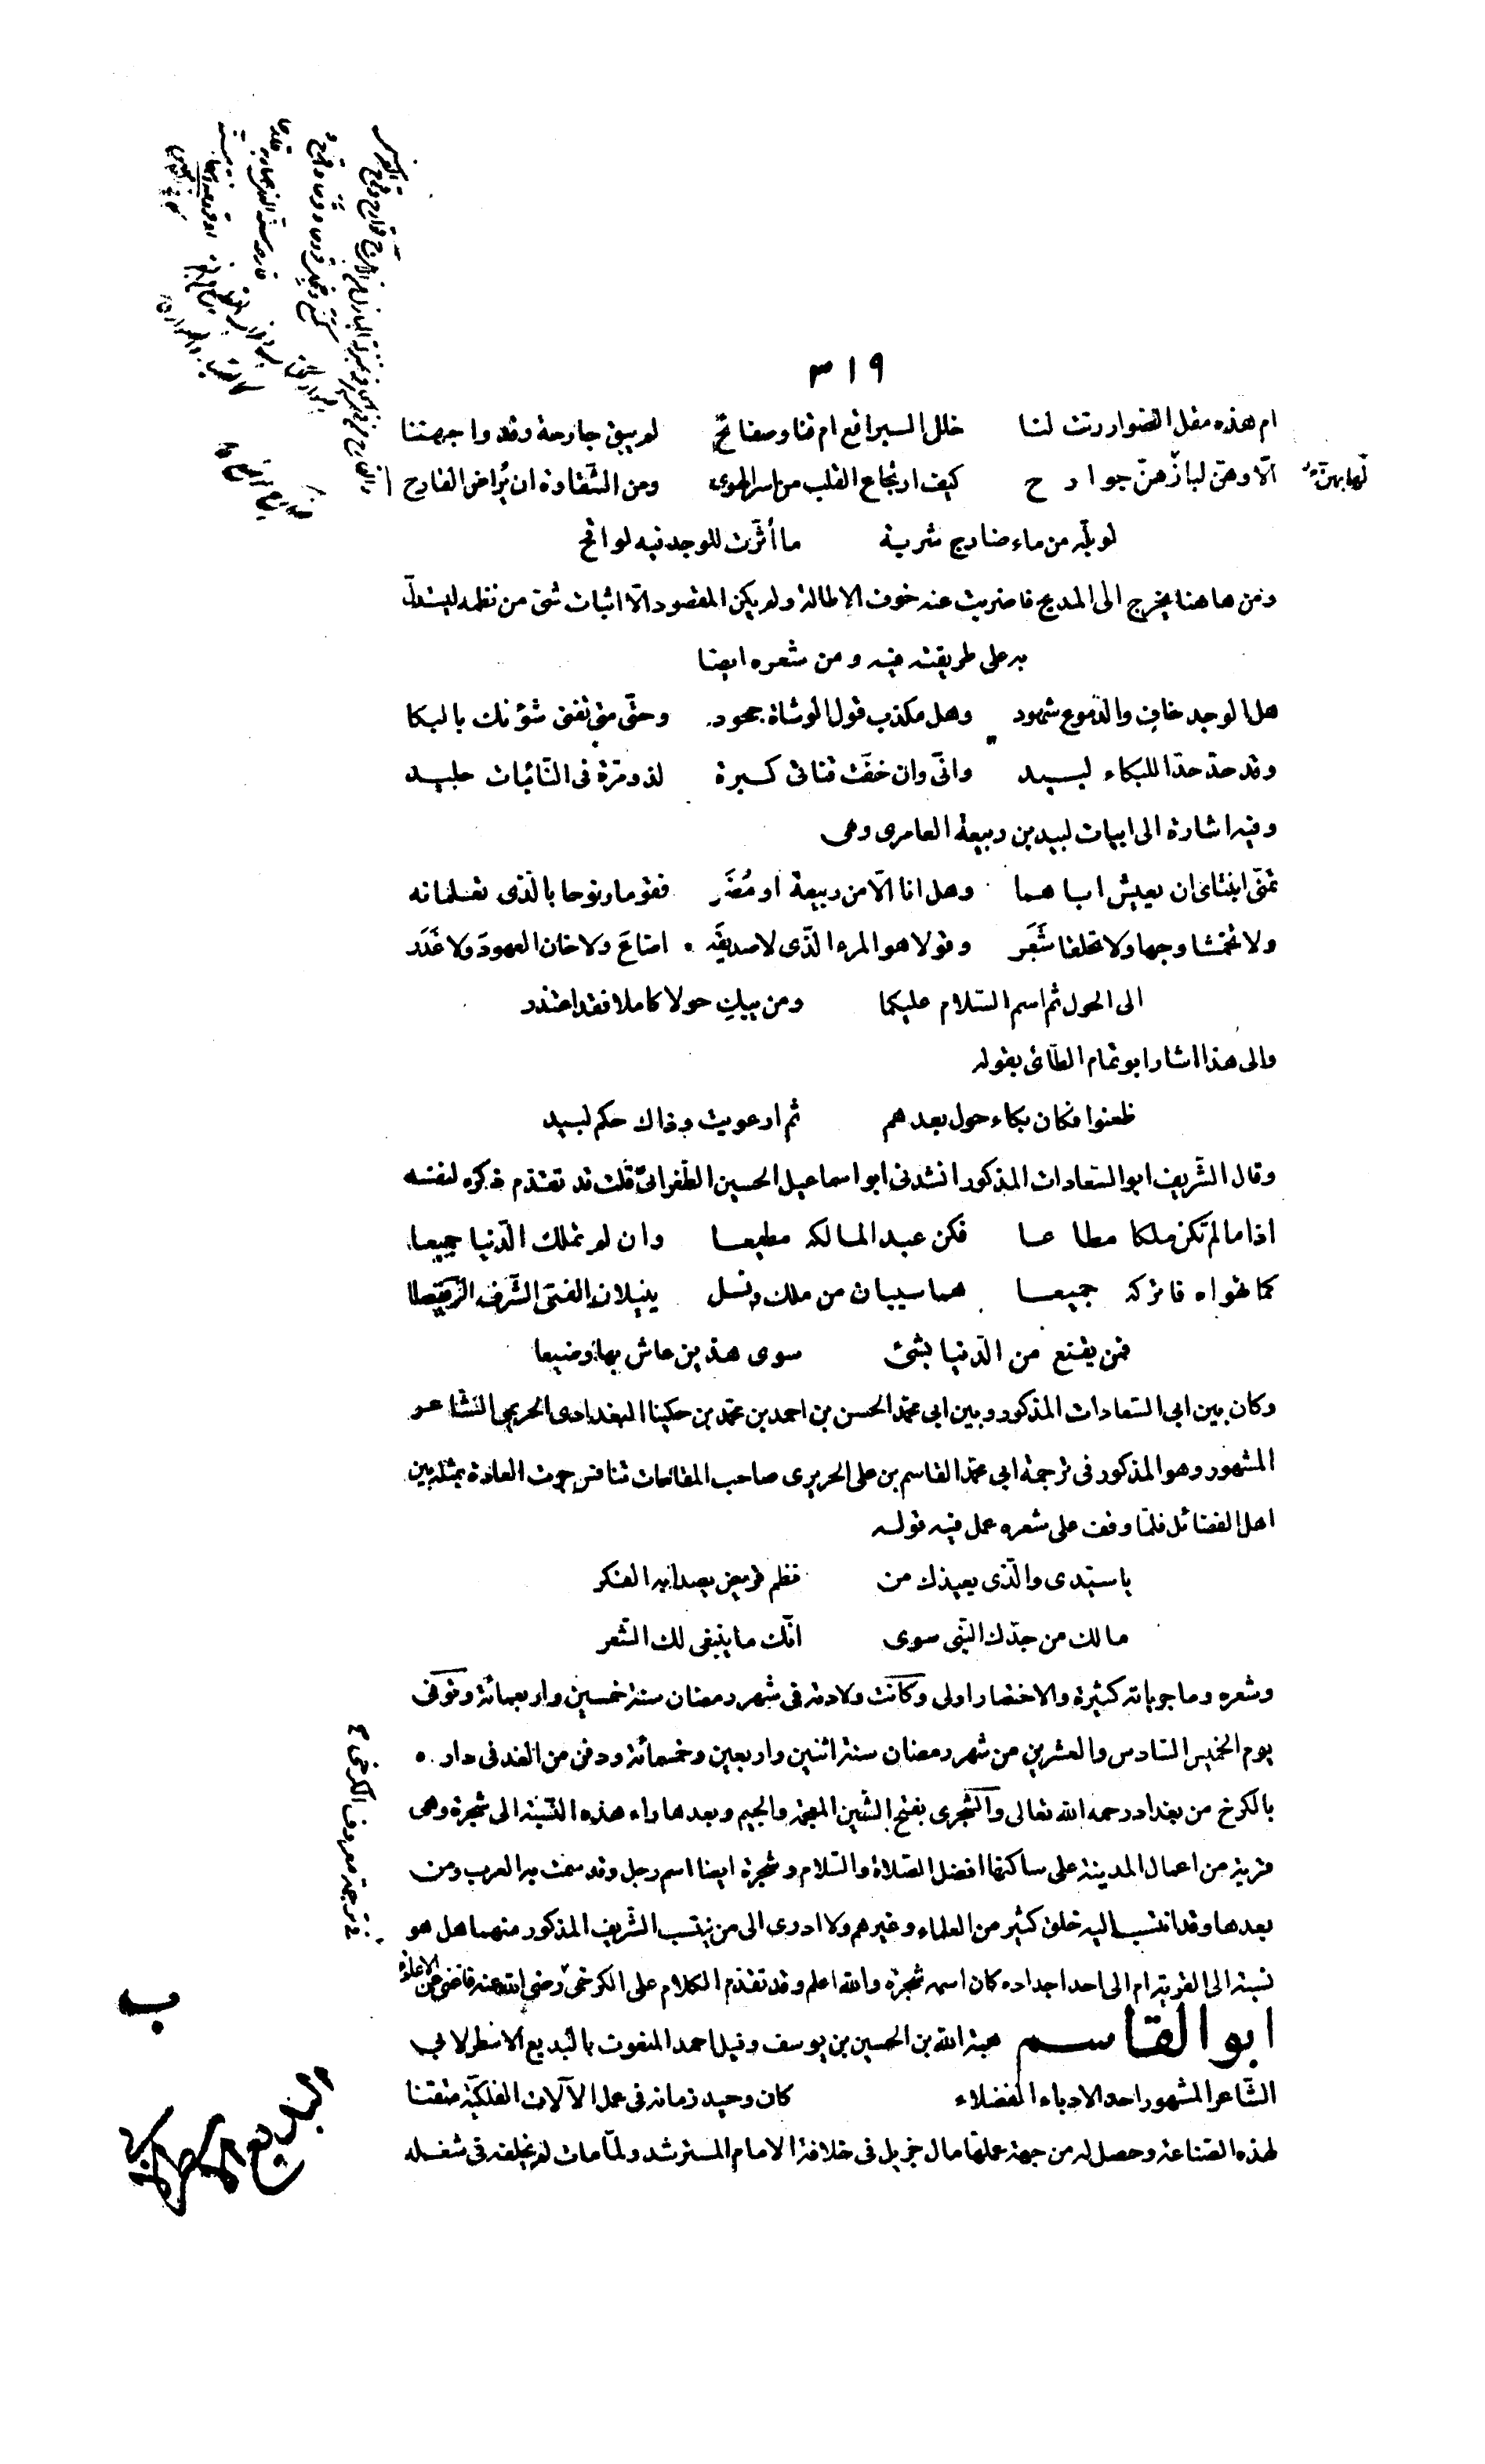 ٣١٩
ام هذه مقل الصوار رنت لنا خلل البراقع ام قنا وصفائح لم يبق جارحة وقد واجهتنا
الّا وهنّ لبازّهنّ جوارح كيف ارتجاع القلب من اسر الهوى ومن الشّقاوة ان يُراض القارح
لو بلّه من ماء ضارج شربة ما أثّرت للوجد فيه لواقح
ومن هاهنا يخرج الى المديح فاضربت عنه خوف الاطالة ولم يكن المقصود الّا اثبات شئ من نظمه ليستدلّ
به على طريقته فيه ومن شعره ايضا
هل الوجد خاف والدّموع شهود وهل مكذب قول الوشاة جحود وحتّى متى تفنى شؤنك بالبكا
وقد حدّ حدّا للبكاء لبيد وانّى وان خفّت قناتى كبرة لذو مرّة فى النّائبات جليد
وفيه اشارة الى ابيات لبيد بن ربيعة العامرى وهى
تمنّى ابنتاى ان يعيش اباهما وهل انا الّا من ربيعة او مُضَر فقوما ونوحا بالّذى تعلمانه
ولا تخمشا وجها ولا تحلقا شَعَر وقولا هو المرء الّذى لا صديقَه اضاعَ ولا خان العهودَ ولا غَدَر
الى الحول ثم اسم السّلام عليكما ومن يبك حولا كاملا فقد اعتذر
والى هذا اشار ابو تمام الطّائى بقوله
ظعنوا فكان بكاء حول بعدهم ثم ارعويت وذاك حكم لبيد
وقال الشّريف ابو السّعادات المذكور انشدنى ابو اسماعيل الحسين الطّغرائى قلت قد تقدّم ذكره لنفسه
اذا ما لم تكن ملكا مطاعا فكن عبد المالكه مطيعا وان لم تملك الدّنيا جميعا
كما تهواه فاتركه جميعا هما سيبان من ملك ونسك ينيلان الفتى الشّرف الرّفيعا
فمن يقنع من الدّنيا بشئ سوى هذين عاش بها وضيعا
وكان بين ابى السّعادات المذكور وبين ابى محمّد الحسن بن احمد بن محمّد بن حكينا البغدادى الحريمى الشّاعر
المشهور وهو المذكور فى ترجمة ابى محمّد القاسم بن على الحريرى صاحب المقامات تنافس جرت العادة بمثله بين
اهل الفضائل فلمّا وقف على شعره عمل فيه قوله
يا سيّدى والّذى يعيذك من نظم قريض يصدا به الفكر
مالك من جدّك النّبى سوى انّك ما ينبغى لك الشّعر
وشعره وماجرياته كثيرة والاختصار اولى وكانت ولادته فى شهر رمضان سنة خمسين واربعمائة وتوفى
يوم الخميس السّادس والعشرين من شهر رمضان سنة اثنين واربعين وخمسمائة ودفن من الغد فى داره
بالكرخ من بغداد رحمه الله تعالى والشّجرى بفتح الشّين المعجمة والجيم وبعدها راء هذه النّسبة الى شجرة وهى
قرية من اعمال المدينة على ساكنها افضل الصّلاة والسّلام وشجرة ايضا اسم رجل وقد سمّت به العرب ومن
بعدها وقد انتسب اليه خلق كثير من العلماء وغيرهم ولا ادرى الى من ينتسب الشّريف المذكور منهما هل هو
نسبة الى القرية ام الى احد اجداده كان اسمه شجرة والله اعلم وقد تقدّم الكلام على الكرخى رضى الله عنه فاغنى عن الاعادة
فى ترجمة معروف الكرخى
ابو القاسم هبة الله بن الحسين بن يوسف وقيل احمد المنعوت بالبديع الاسطرلابي
ب
البديع الاسطرلابي
الشّاعر المشهور احد الادباء الفضلاء كان وحيد زمانه فى عمل الآلات الفلكيّة متقنا
لهذه الصّناعة وحصل له من جهة عملها مال جزيل فى خلافة الامام المسترشد ولمّا مات لم يخلفه فى شغله